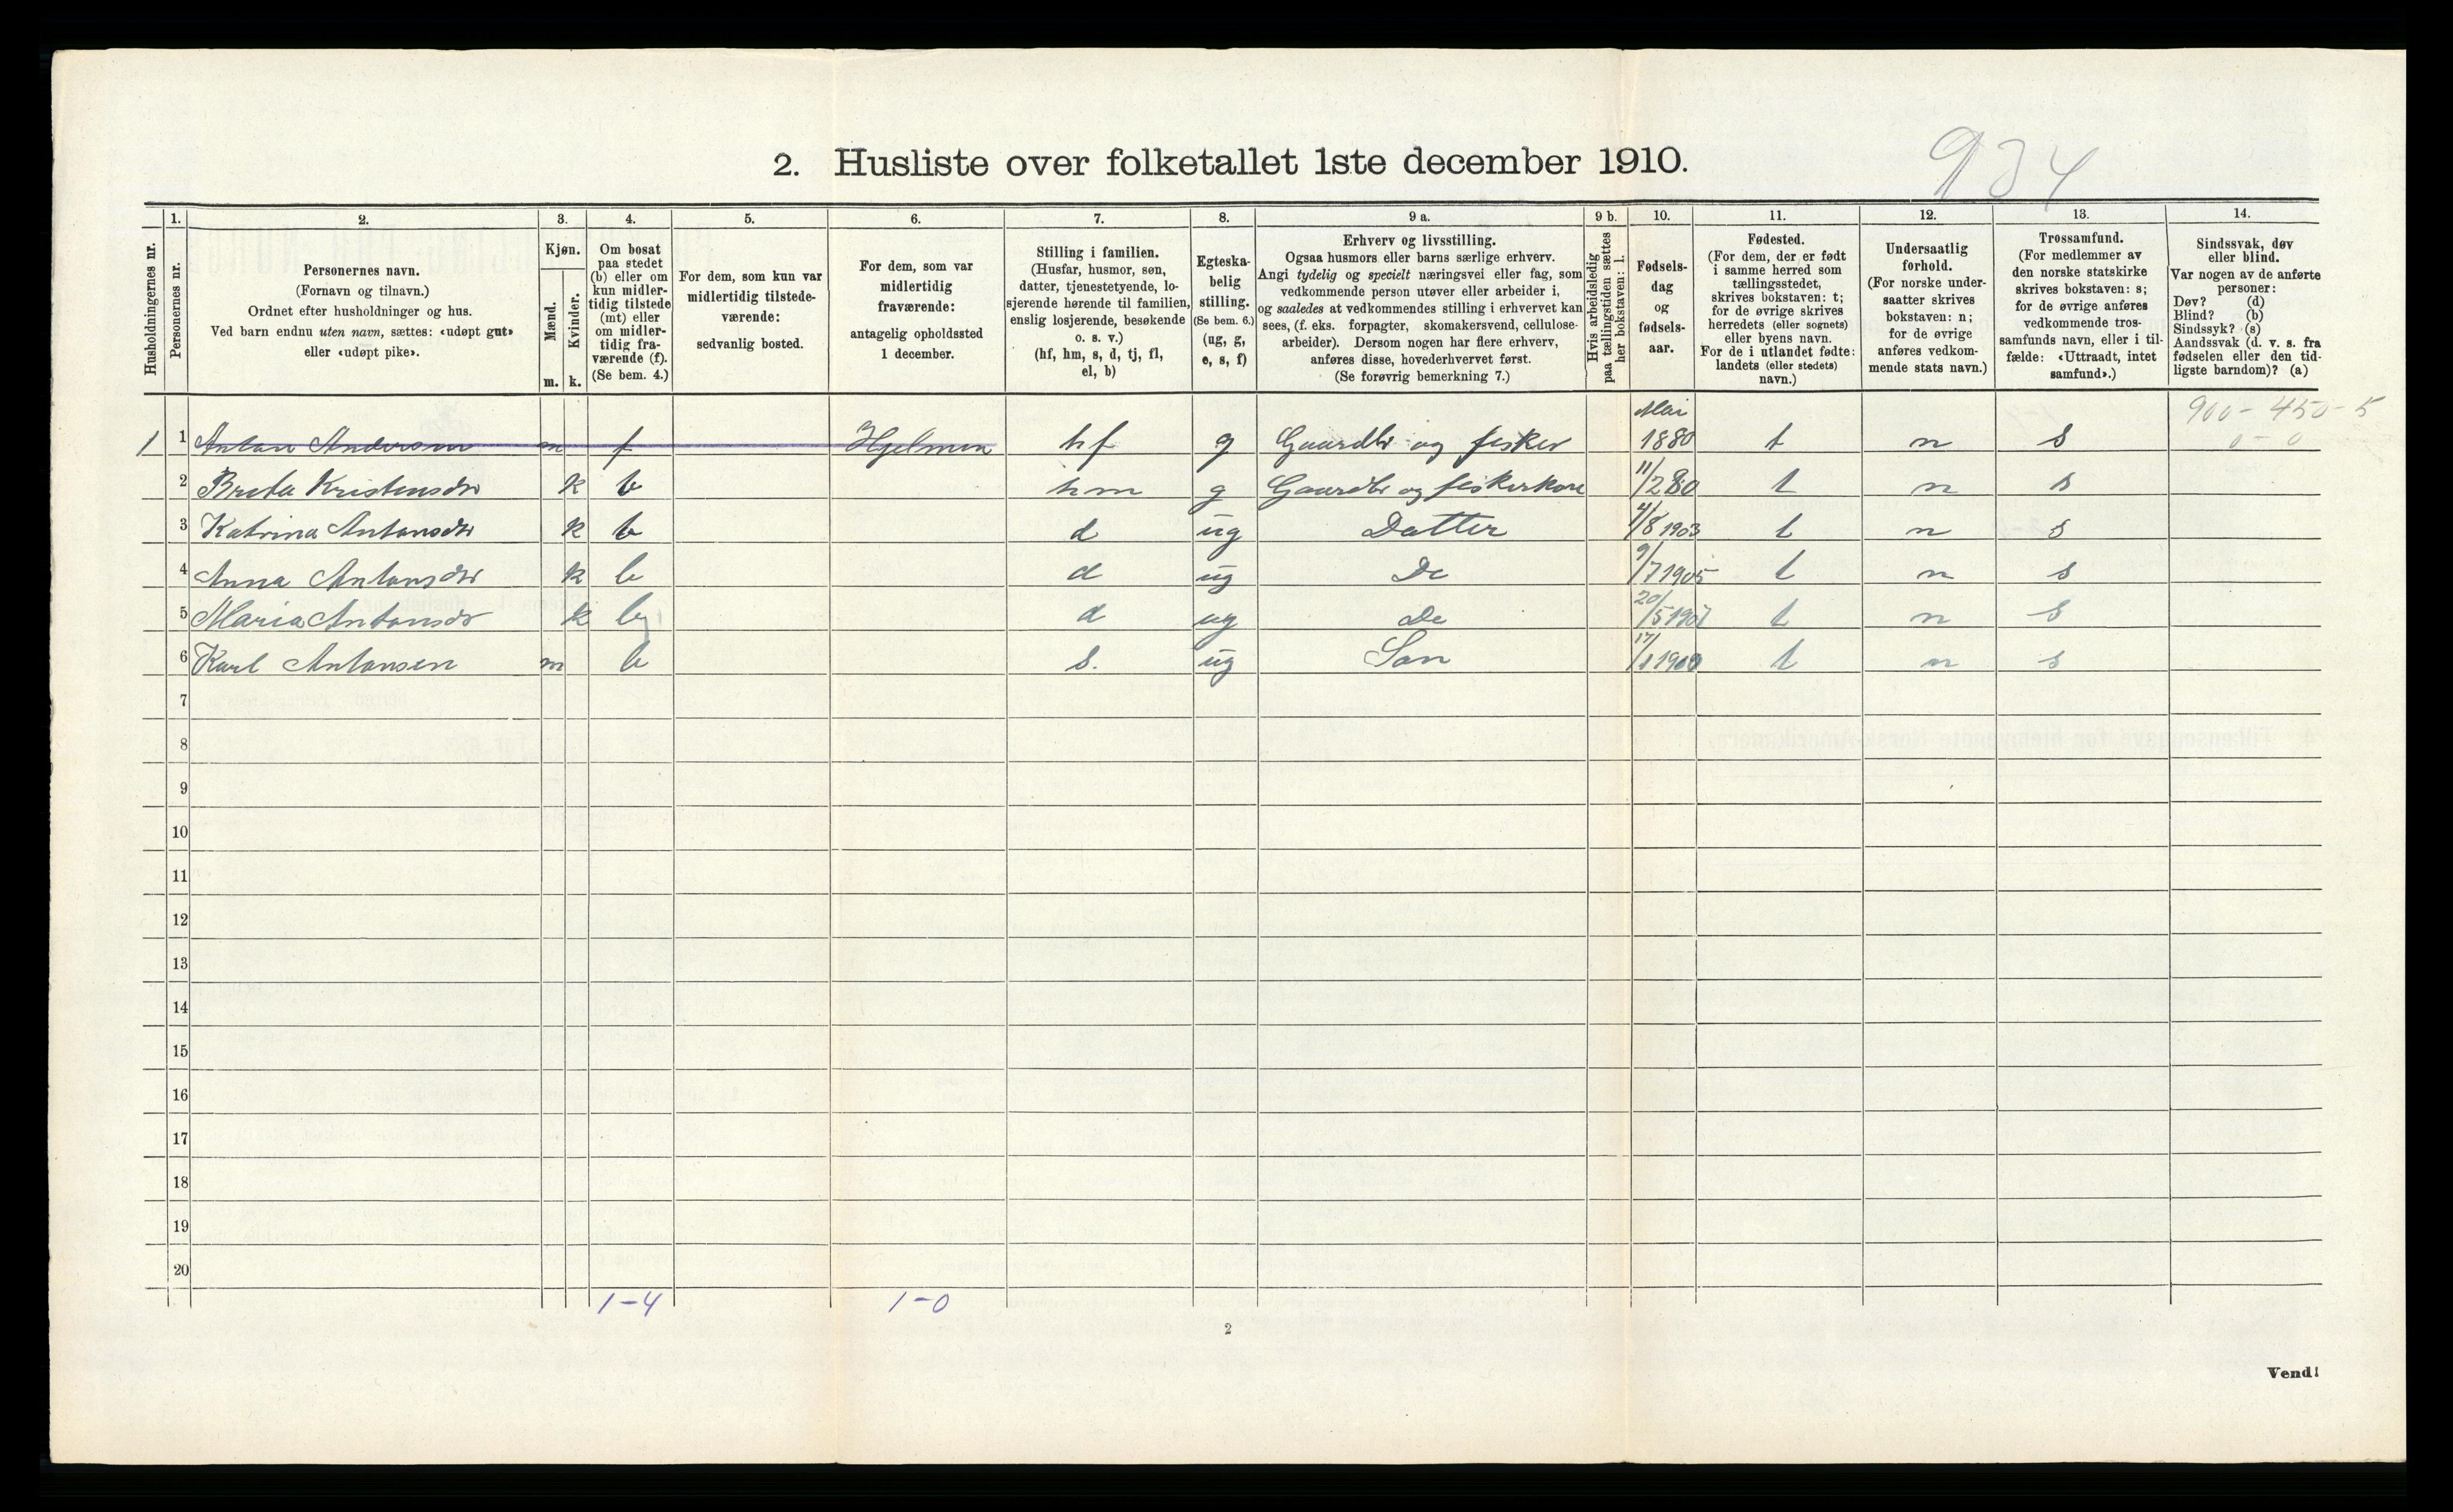 934
2. Husliste over folketallet 1ste december 1910.
Husholdningernes nr.
1. Personernes nr.
2. Personernes navn.
(Fornavn og tilnavn.)
Ordnet efter husholdninger og hus.
Ved barn endnu uten navn, sættes: «udøpt gut»
eller «udøpt pike».
3. Kjøn.
Mænd. m.
Kvinder. k.
4. Om bosat
paa stedet
(b) eller om
kun midler-
tidig tilstede
(mt) eller
om midler-
tidig fra-
værende (f).
(Se bem. 4.)
5. For dem, som kun var
midlertidig tilstede-
værende:
sedvanlig bosted.
6. For dem, som var
midlertidig
fraværende:
antagelig opholdssted
1 december.
7. Stilling i familien.
(Husfar, husmor, søn,
datter, tjenestetyende, lo-
sjerende hørende til familien,
enslig losjerende, besøkende
o. s. v.)
(hf, hm, s, d, tj, fl,
el, b)
8. Egteska-
belig
stilling.
(Se bem. 6.)
(ug, g,
e, s, f)
9 a. Erhverv og livsstilling.
Ogsaa husmors eller barns særlige erhverv.
Angi tydelig og specielt næringsvei eller fag, som
vedkommende person utøver eller arbeider i,
og saaledes at vedkommendes stilling i erhvervet kan
sees, (f. eks. forpagter, skomakersvend, cellulose-
arbeider). Dersom nogen har flere erhverv,
anføres disse, hovederhvervet først.
(Se forøvrig bemerkning 7.)
9 b. Hvis arbeidsledig
paa tællingstiden sættes
her bokstaven: l.
10. Fødsels-
dag
og
fødsels-
aar.
11. Fødested.
(For dem, der er født
i samme herred som
tællingsstedet,
skrives bokstaven: t;
for de øvrige skrives
herredets (eller sognets)
eller byens navn.
For de i utlandet fødte:
landets (eller stedets)
navn.)
12. Undersaatlig
forhold.
(For norske under-
saatter skrives
bokstaven: n;
for de øvrige
anføres vedkom-
mende stats navn.)
13. Trossamfund.
(For medlemmer av
den norske statskirke
skrives bokstaven: s;
for de øvrige anføres
vedkommende tros-
samfunds navn, eller i til-
fælde: «Uttraadt, intet
samfund».)
14. Sindssvak, døv
eller blind.
Var nogen av de anførte
personer:
Døv? (d)
Blind? (b)
Sindssyk? (s)
Aandssvak (d. v. s. fra
fødselen eller den tid-
ligste barndom)? (a)
900 - 450 - 5
0 - 0
1 1 Antan Anderson m f Hjelmen hf g Gaardbr og fisker Mai 1880 t n s
2 Breta Kristensdtr k b hm g Gaardbr og fiskerkone 11/2 80 t n s
3 Katrina Antansdtr k b d ug Datter 4/8 1903 t n s
4 Anna Antansdtr k b d ug Do 9/7 1905 t n s
5 Maria Antansdtr k b d ug Do 20/5 1907 t n s
6 Karl Antansen m b s. ug Søn 17/1 1909 t n s
7
8
9
10
11
12
13
14
15
16
17
18
19
20
1-4 1-0
2
Vend!